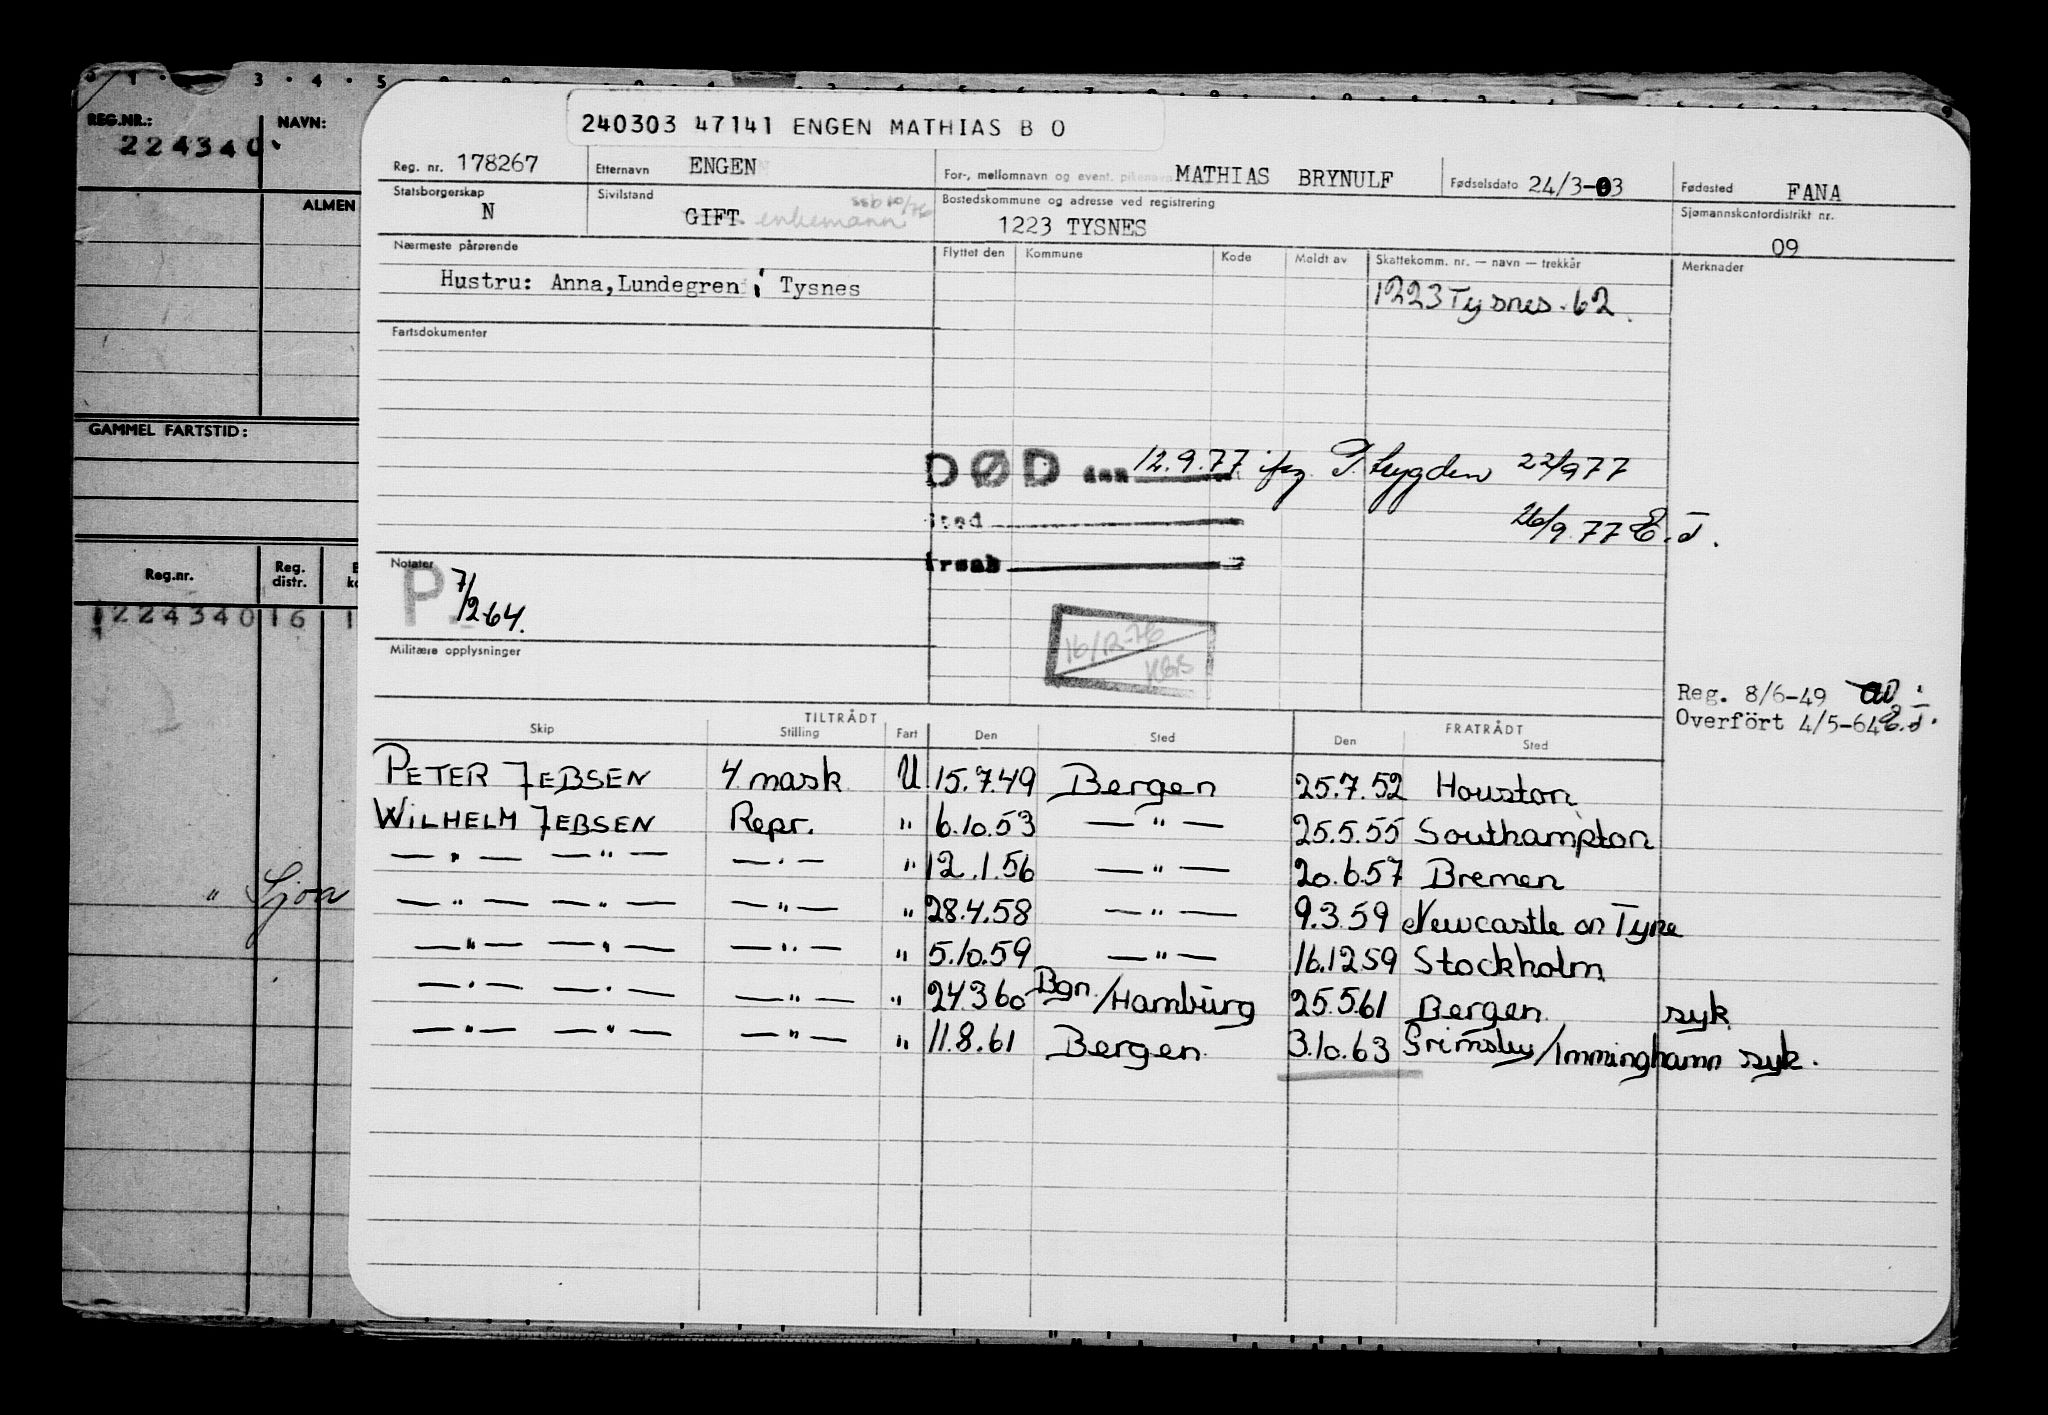 REG.NR.: 224340
NAVN:
ALMEN
GAMMEL FARTSTID:
Reg.nr. Reg. distr.
224340 16 1
" Sjoa
240303 47141 ENGEN MATHIAS B O
Reg. nr. 178267 Etternavn ENGEN For-, mellomnavn og event. pikenavn MATHIAS BRYNULF Fødselsdato 24/3-03 Fødested FANA
Statsborgerskap N Sivilstand GIFT. enkemann ssb 10/76 Bostedskommune og adresse ved registrering 1223 TYSNES Sjømannskontordistrikt nr. 09
Nærmeste pårørende Flyttet den Kommune Kode Meldt av Skattekomm. nr. — navn — trekkår Merknader
Hustru: Anna, Lundegren, Tysnes 1223 Tysnes. 62.
Fartsdokumenter
DØD den 12.9.77. ifg T. trygden 22/9 77
sted 26/9.77 E.J.
årsak
Notater
P 7/2 64.
16/12-76
Militære opplysninger
Reg. 8/6-49
Overfört 4/5-64 E.J.
TILTRÅDT FRATRÅDT
Skip Stilling Fart Den Sted Den Sted
PETER JEBSEN 4 mask U 15.7.49 Bergen 25.7.52 Houston
WILHELM JEBSEN Repr. " 6.10.53 — " — 25.5.55 Southampton
— " — — " — — " — " 12.1.56 — " — 20.6.57 Bremen
— " — — " — — " — " 28.4.58 — " — 9.3.59 Newcastle on Tyne
— " — — " — — " — " 5.10.59 — " — 16.12 59 Stockholm
— " — — " — — " — " 24.3 60 Bgn./Hamburg 25.5.61 Bergen syk
— " — — " — — " — " 11.8.61 Bergen 3.10.63 Grimsby/Imminghamn syk.